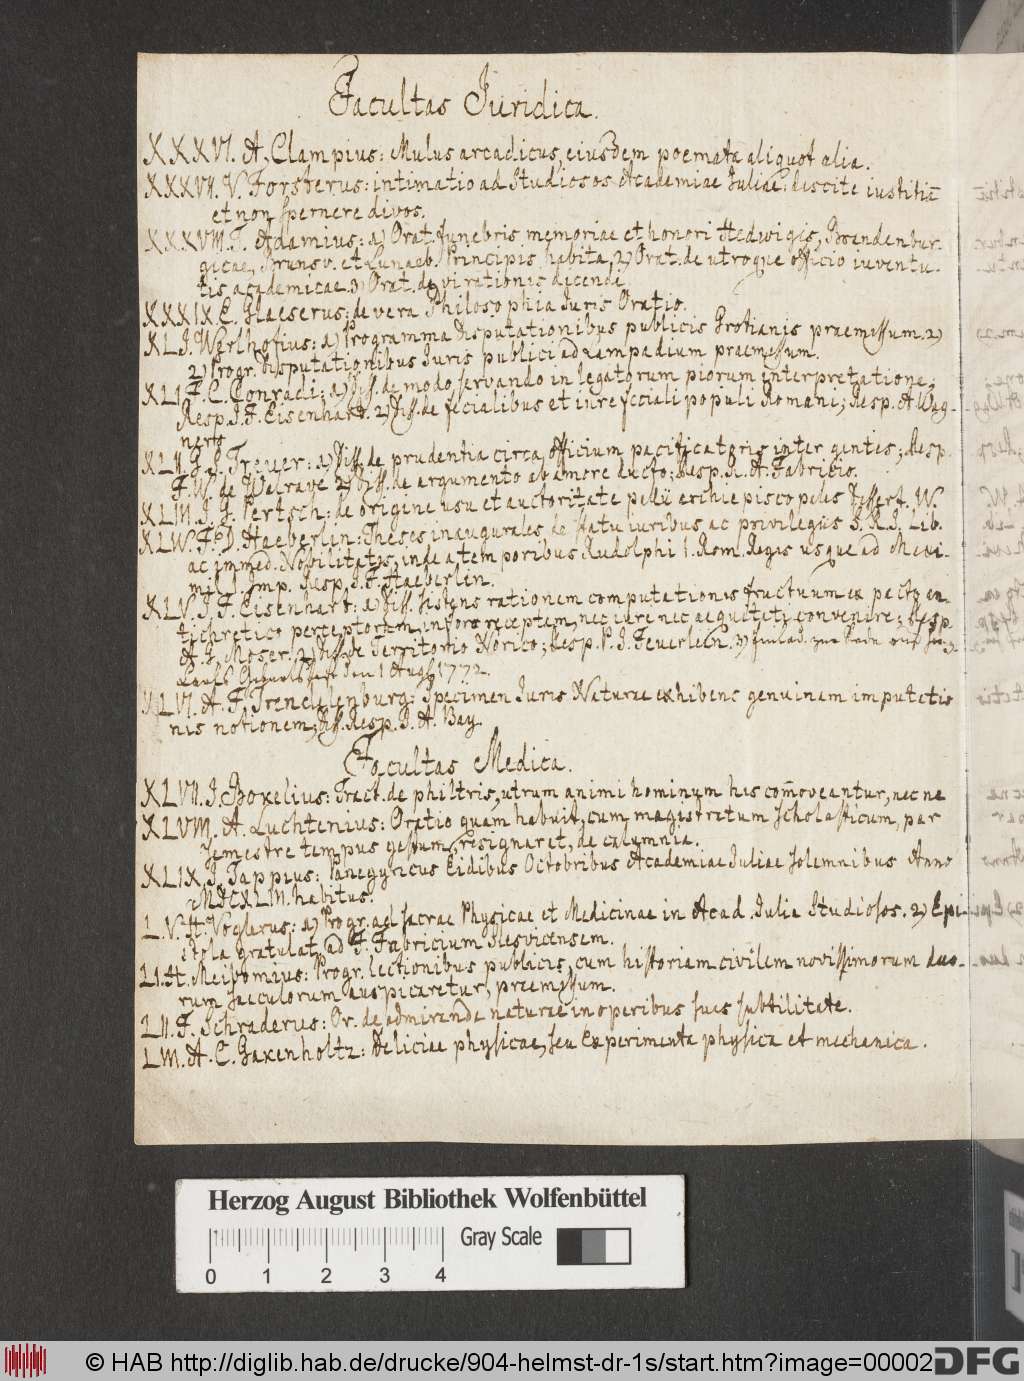 Facultas Iuridica.
XXXVI. A. Clampius: Mulus arcadicus, eiusdem poemata aliquot alia.
XXXVII. V. Forsterus: intimatio ad Studiosos Academiae Iuliae: discite iustitiā
et non spernere divos.
XXXVIII. T. Adamius: 1) Orat. funebris memoriae et honori Hedwigis, Brandenbur-
gicae, Brunsv. et Lunaeb. Principis habita, 2) Orat. de utroque officio iuventu-
tis academicae. 3) Orat. de vi rationis dicendi
XXXIX E. Claeserus: de vera Philosophia Iuris Oratio.
XL J. Werlhofius: 1) Programma disputationibus publicis Grotianis praemissum. 2)
2) Progr. disputationibus Iuris publici ad Lampadium praemissum.
XLI F. C. Conradi: 1) Diss. de modo servando in legatorum piorum interpretatione;
Resp. J. F. Eisenhart. 2) Diss. de fecialibus et iure feciali populi Romani; Resp. A Wag-
nero
XLII. G. S. Treuer: 1) Diss. de prudentia circa officium pacificatoris inter gentes; Resp.
F. W. de Walrave 2) Diss. de argumento ab amore ducto; Resp. R. A. Fabricio.
XLIII. J. G. Pertsch: de origine usu et auctoritate pallii archiepiscopalis Dissert. IV.
XLIV. F. D. Haeberlin: Theses inaugurales de statu iuribus ac privilegiis S. R. I. Lib.
ac immed. Nobilitatis, inde a temporibus Rudolphi I. Rom. Regis usque ad Maxi-
mil. I. Imp. Resp. J. F. Haeberlen.
XLV. J. F. Eisenhart: 1) Diss. sistens rationem computationis fructuum ex pacto an-
tichretico perceptorum, in foro receptam, nec iure nec aequitati convenire; Resp.
A. J. Moser. 2) Diss. de Territorio Norico; Resp. P. J. Feuerlein. 3) Einlad. zur Rede
den 1 Aug. 1772.
XLVI. A. F. Trendelenburg: Specimen Iuris Naturae exhibens genuinam imputatio
nis notionem; Diss. Resp. B. A. Bay
Facultas Medica.
XLVII. J. Boxelius: Tract. de philtris, utrum animi hominum his com̄oveantur, nec ne
XLVIII. A. Luchtenius: Oratio quam habuit, cum magistratum Scholasticum, per
semestre tempus gestum, resignaret, de calumnia.
XLIX J. Tappius: Panegyricus Eidibus Octobribus Academiae Iuliae solemnibus Anno
MDCXLIII. habitus.
L. V. H. Voglerus: 1) Progr. ad sacrae Physicae et Medicinae in Acad. Iulia Studiosos. 2) Epi-
stola gratulat. ad F. Fabricium Slesvicensem.
LI. H. Meibomius: Progr. lectionibus publicis, cum historiam civilem novissimorum duo-
rum saeculorum auspicaretur, praemissum.
LII. F. Schraderus: Or. de admiranda naturae in operibus suis subtilitate.
LIII. A. C. Gakenholtz: Deliciae physicae, seu Experimenta physica et mechanica.
Herzog August Bibliothek Wolfenbüttel
Gray Scale
0 1 2 3 4
© HAB http://diglib.hab.de/drucke/904-helmst-dr-1s/start.htm?image=00002
DFG